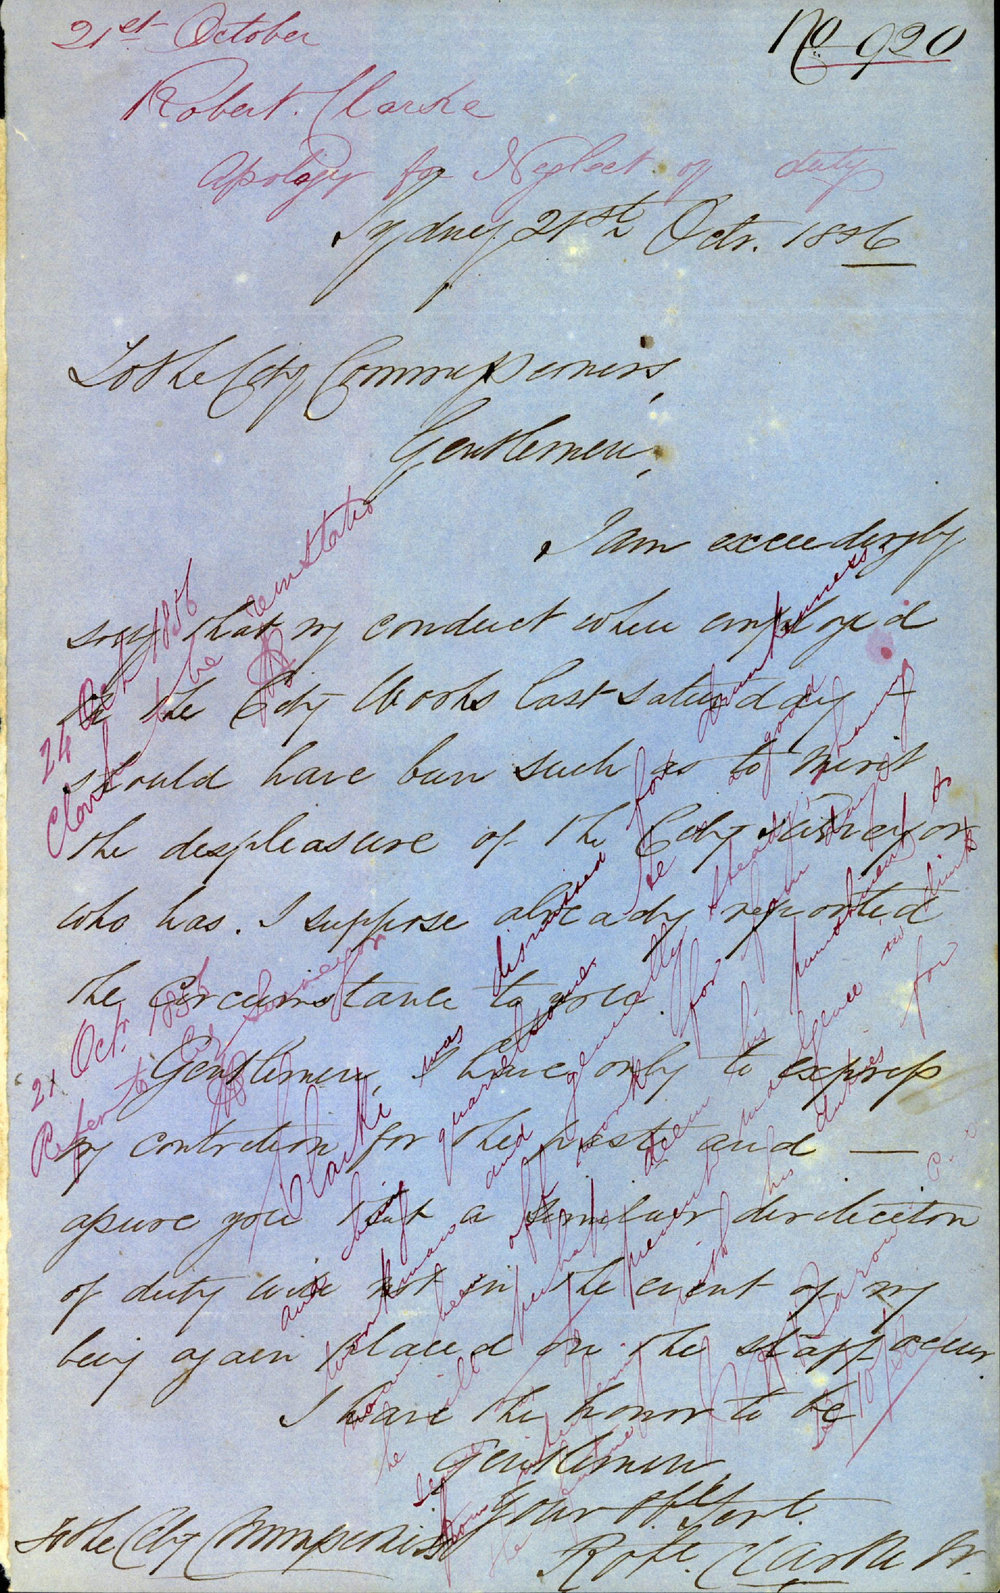 21st October
No 920
Robert Clarke
Apology for Neglect of duty
Sydney 21st Octr. 1856
To the City Commissioners,
Gentlemen,
I am exceedingly
sorry that my conduct when employed
in the City Works last saturday
should have been such as to merit
the despleasure of the City Surveyor
who has. I suppose already reported
the Circumstance to you
Gentlemen, I have only to express
my contrition for the past and —
assure you that a similar direliction
of duty will not in the event of my
being again placed on the staff occur
I have the honor to be
Gentlemen
Your Obt Servt.
Robt. Clarke Jr.
To the City Commissioners
24 Oct 1856
Clark to be reinstated
21 Octr. 1856
Refer to City Surveyor
Clarke was dismissed for drunkenness
and being quarrelsome. He is a good
workman and generally steady, having
now been off work for a few days
he will perhaps deem his punishment
for present
his duties for
the future